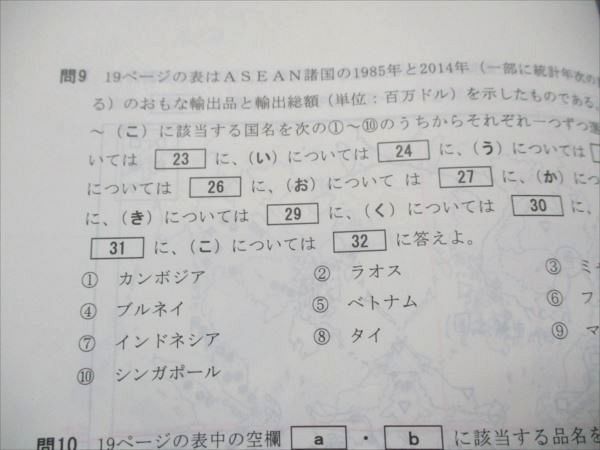 問9 19ページの表はASEAN諸国の1985年と2014年(一部に統計年次の
る)のおもな輸出品と輸出総額(単位:百万ドル)を示したものである。
~(こ)に該当する国名を次の①~⑩のうちからそれぞれ一つずつ選
いては 23 に、(い)については 24 に、(う)については
については 26 に、(お)については 27 に、(か)につ
に、(き)については 29 に、(く)については 30 に、
31 に、(こ)については 32 に答えよ。
① カンボジア ② ラオス ③ ミ
④ ブルネイ ⑤ ベトナム ⑥ フ
⑦ インドネシア ⑧ タイ ⑨ マ
⑩ シンガポール
問10 19ページの表中の空欄 a ・ b に該当する品名を